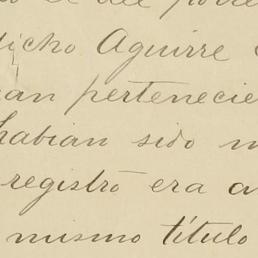 dicho Aguirre
pertenecie
habian sido
registró era a
mismo título